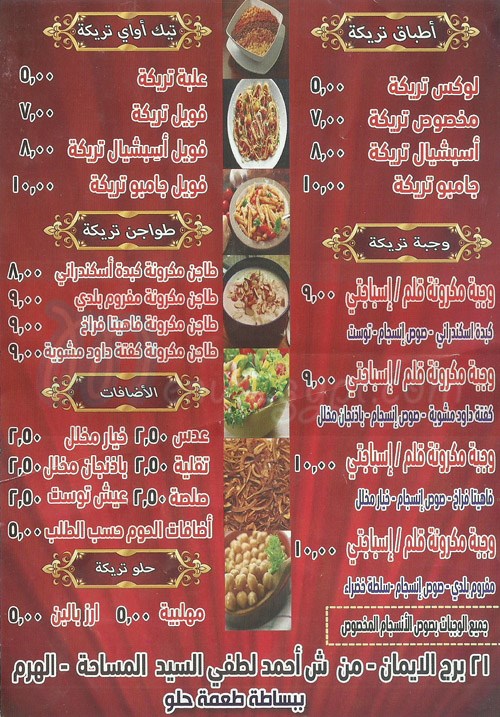 أطباق تريكة
لوكس تريكة ٥,٠٠
مخصوص تريكة ٧,٠٠
أسبشيال تريكة ٨,٠٠
جامبو تريكة ١٠,٠٠
وجبة تريكة
وجبة مكرونة قلم / إسباجتي ٩,٠٠
كبدة اسكندراني - صوص إنسجام - توست
وجبة مكرونة قلم / إسباجتي ٩,٠٠
كفتة داود مشوية - صوص إنسجام - باذنجان مخلل
وجبة مكرونة قلم / إسباجتي ١٠,٠٠
فاهيتا فراخ - صوص إنسجام - خيار مخلل
وجبة مكرونة قلم / إسباجتي ١٠,٠٠
مفروم بلدي - صوص إنسجام - سلطة خضراء
جميع الوجبات بصوص الأنسجام المخصوص
تيك أواي تريكة
علبة تريكة ٥,٠٠
فويل تريكة ٧,٠٠
فويل أسبشيال تريكة ٨,٠٠
فويل جامبو تريكة ١٠,٠٠
طواجن تريكة
طاجن مكرونة كبدة أسكندراني ٨,٠٠
طاجن مكرونة مفروم بلدي ٩,٠٠
طاجن مكرونة فاهيتا فراخ ٩,٠٠
طاجن مكرونة كفتة داود مشوية ٩,٠٠
الأضافات
عدس ٢,٥٠ خيار مخلل ٢,٥٠
تقلية ٢,٥٠ باذنجان مخلل ٢,٥٠
صلصة ٢,٥٠ عيش توست ٢,٥٠
أضافات الحوم حسب الطلب ٥,٠٠
حلو تريكة
مهلبية ٥,٠٠ ارز بالبن ٥,٠٠
٢١ برج الايمان - من ش أحمد لطفي السيد المساحة - الهرم
ببساطة طعمة حلو